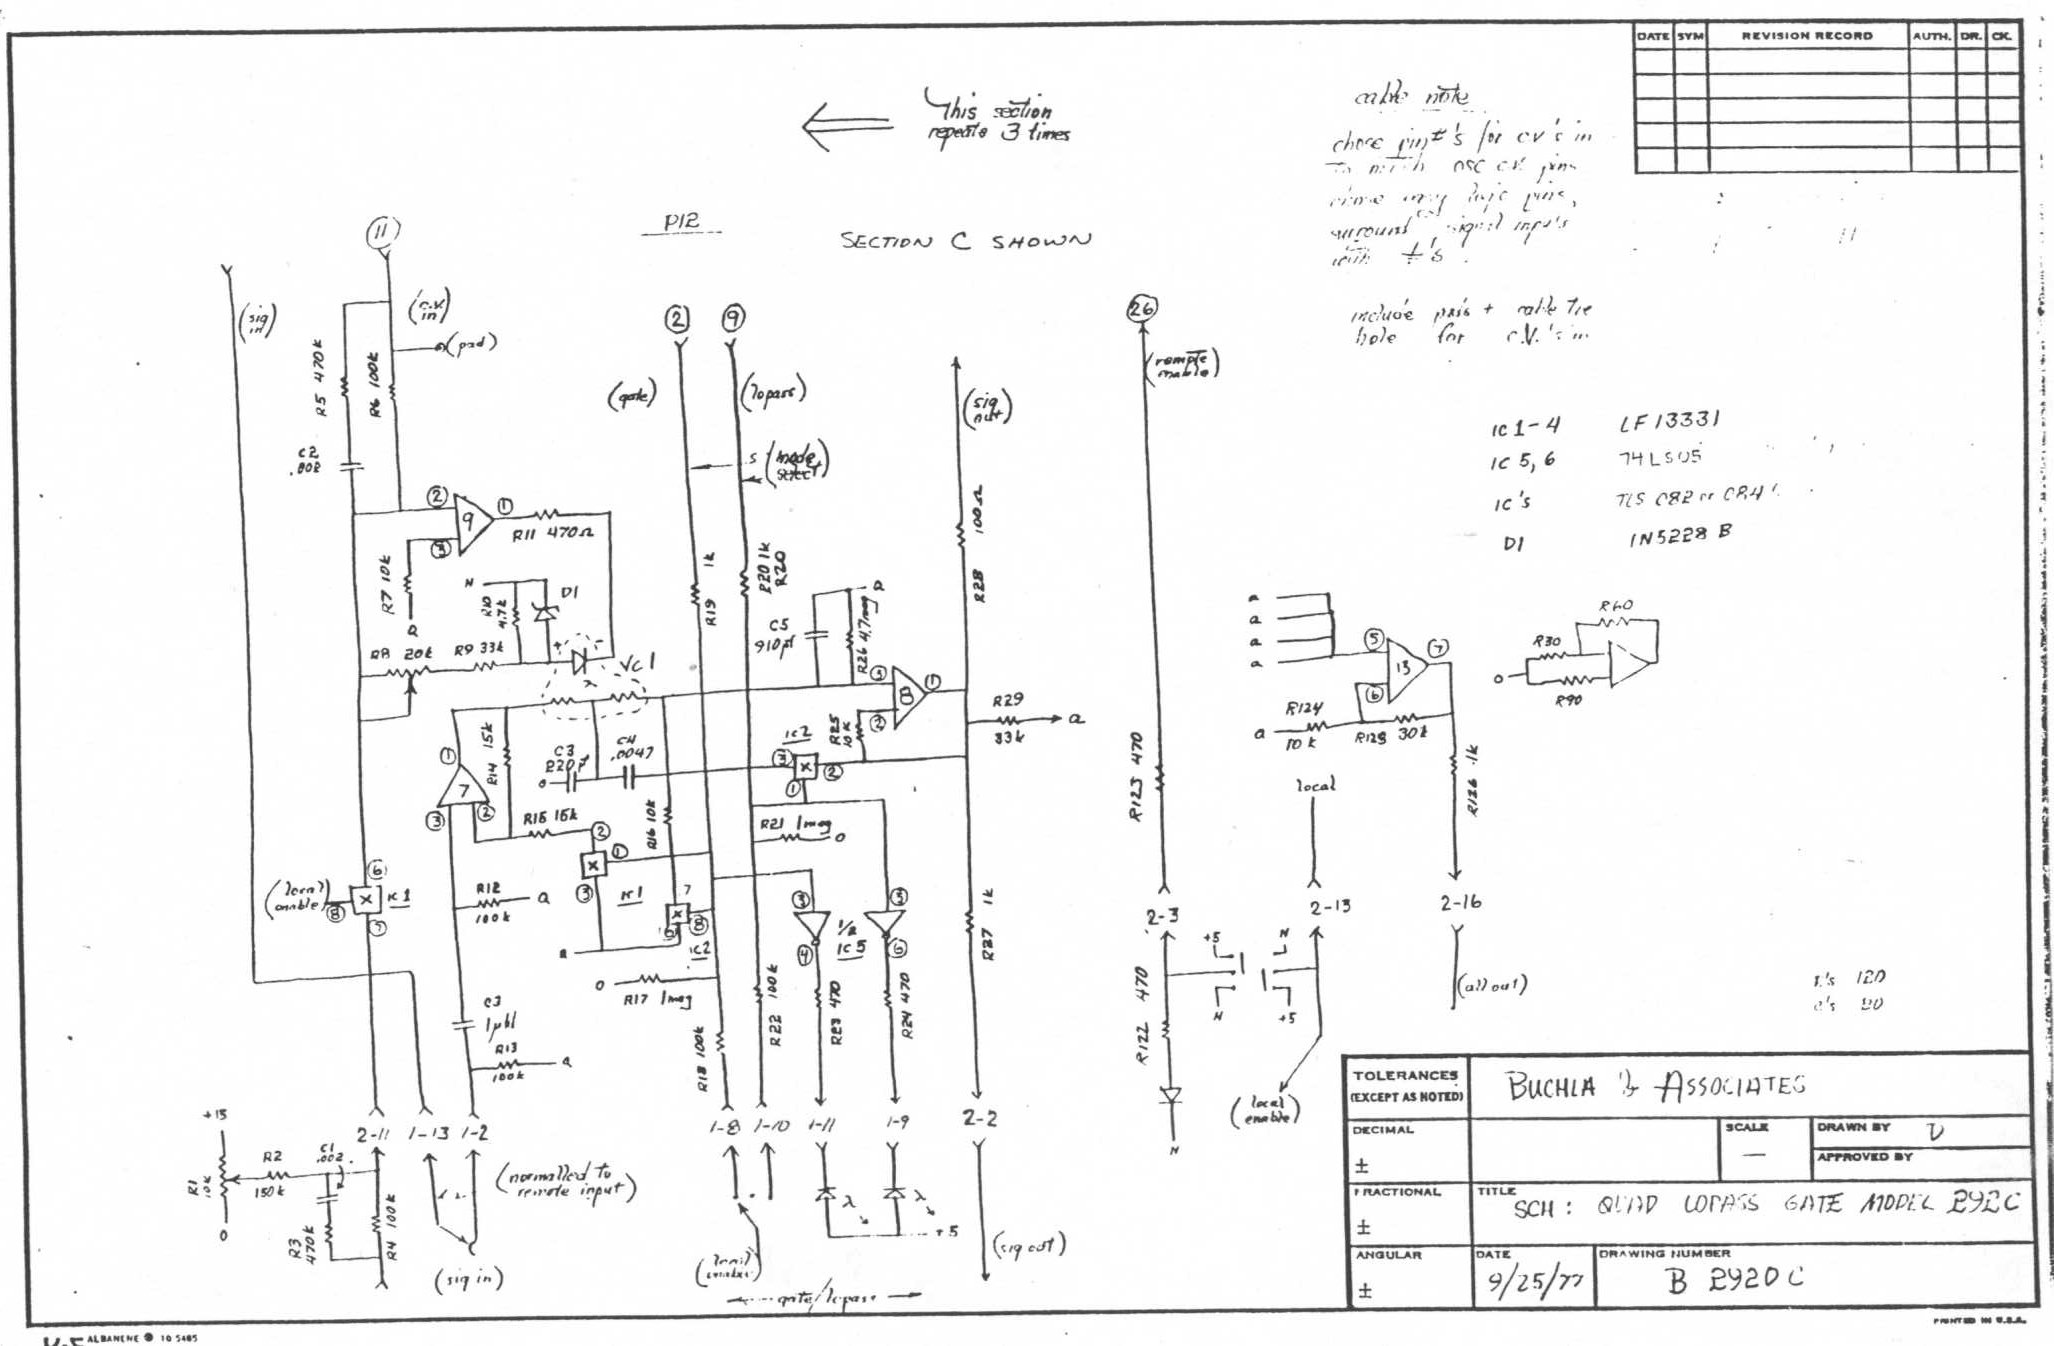 DATE SYM REVISION RECORD AUTH. DR. CK.
This section
repeats 3 times
cable note
chose pin #'s for cv's in
to match osc cv pins
surround signal inputs
with
include pads + cable tie
hole for c.v.'s in
P12
SECTION C SHOWN
11
(sig in)
(c.v. in)
(pad)
2
9
26
(gate)
(lopass)
(sig out)
(remote enable)
S (mode select)
R5 470k
R6 100k
C2 .002
2
9
1
3
R11 470Ω
R7 10k
a
N
R10 4.7k
D1
R8 20k
R9 33k
+
-
λ
VC1
R19 1k
R20 1k
R20
C5 910pf
R26 4.7meg
a
R28 100Ω
3
8
1
2
R25 10k
R29
33k
a
ic 1-4 LF13331
ic 5,6 74LS05
ic's
D1 1N5228B
a
a
a
a
5
13
7
6
R124
10k
a
R125 30k
R126 1k
R60
R30
R90
o
R14 15k
C3
220pf
o
C4
.0047
ic2
3
x
2
1
1
7
3
2
R15 15k
2
x
1
3
ic1
R16 10k
7
x
8
6
ic2
R21 1meg
o
a
o
R17 1meg
3
4
1/2
ic5
5
6
R123 470
local
(local enable)
8
x
6
7
ic1
R12
100k
a
C3
1µbl
R13
100k
a
R18 100k
R22 100k
R23 470
R24 470
R27 1k
2-3
2-13
2-16
+5
N
N
+5
R122 470
N
(local enable)
(all out)
r's 120
c's 20
+15
R1 10k
0
R2
150k
C1
.002
R3 470k
R4 100k
2-11 1-13 1-2
(normalled to
remote input)
(sig in)
1-8 1-10 1-11 1-9 2-2
λ
λ
+5
(local enable)
gate/lopass
(sig out)
TOLERANCES
(EXCEPT AS NOTED)
DECIMAL
±
FRACTIONAL
±
ANGULAR
±
BUCHLA & ASSOCIATES
SCALE
—
DRAWN BY
APPROVED BY
TITLE
SCH: QUAD LOPASS GATE MODEL 292C
DATE
9/25/77
DRAWING NUMBER
B 2920C
ALBANENE ® 10 5485
PRINTED IN U.S.A.